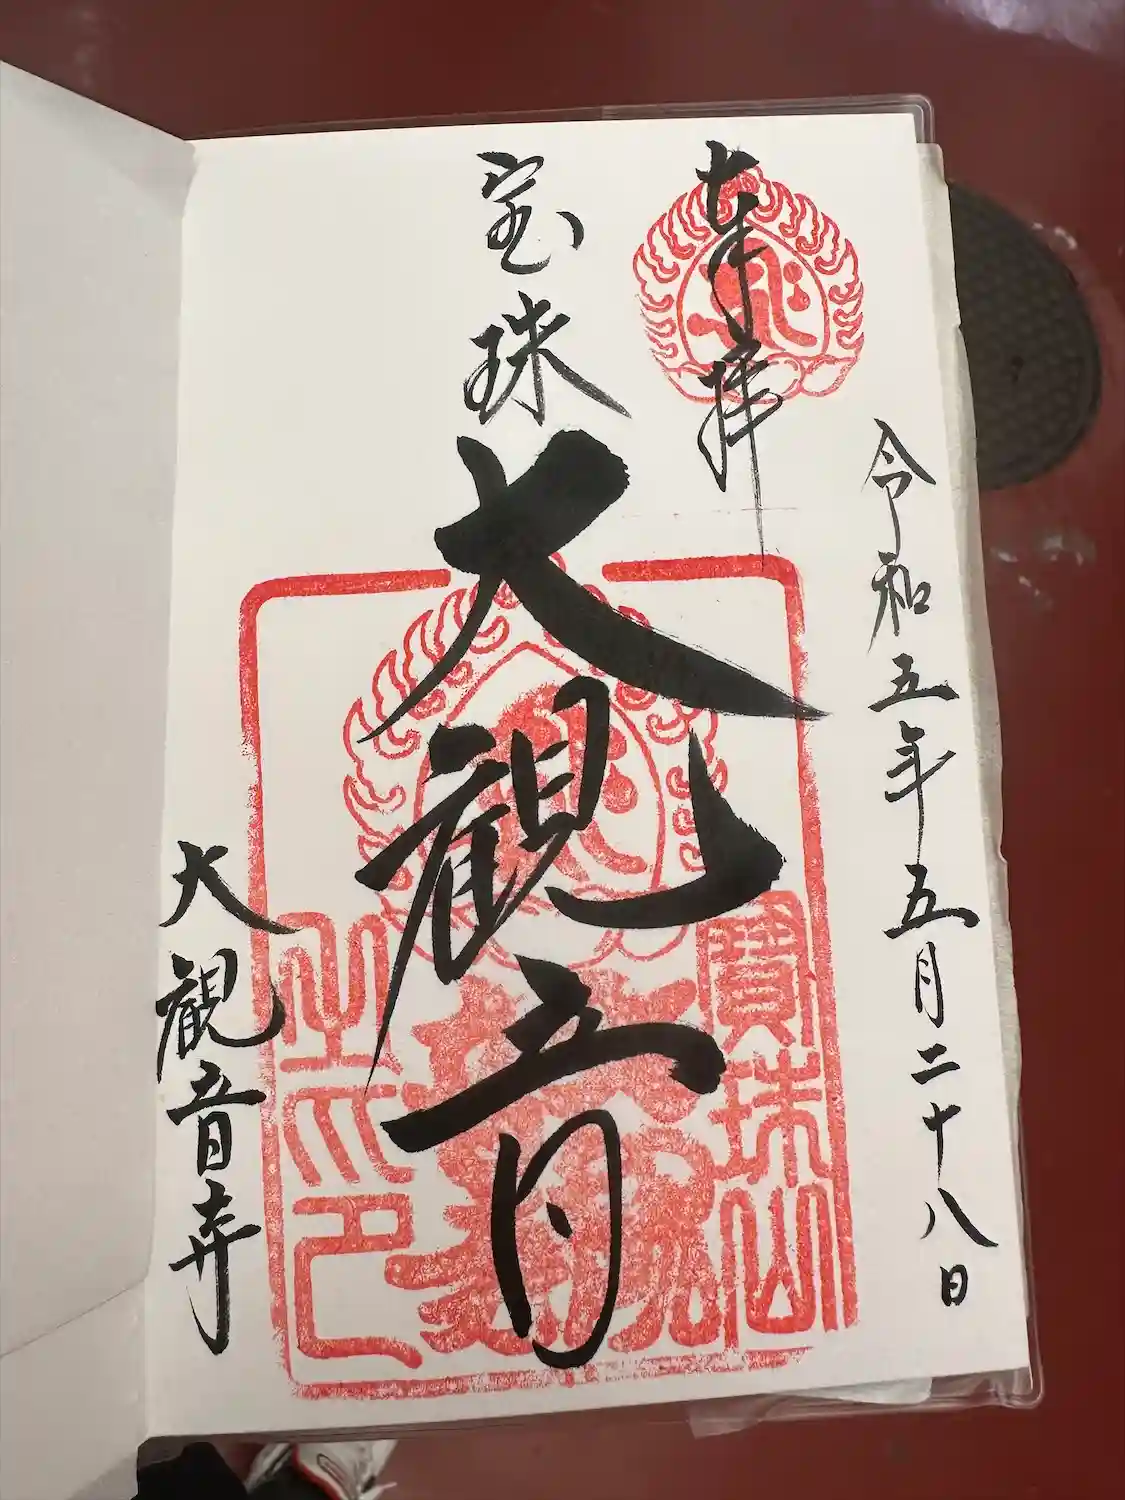 令和五年五月二十八日
奉拝
宝珠
大観音
大観音寺
寶珠山
之印